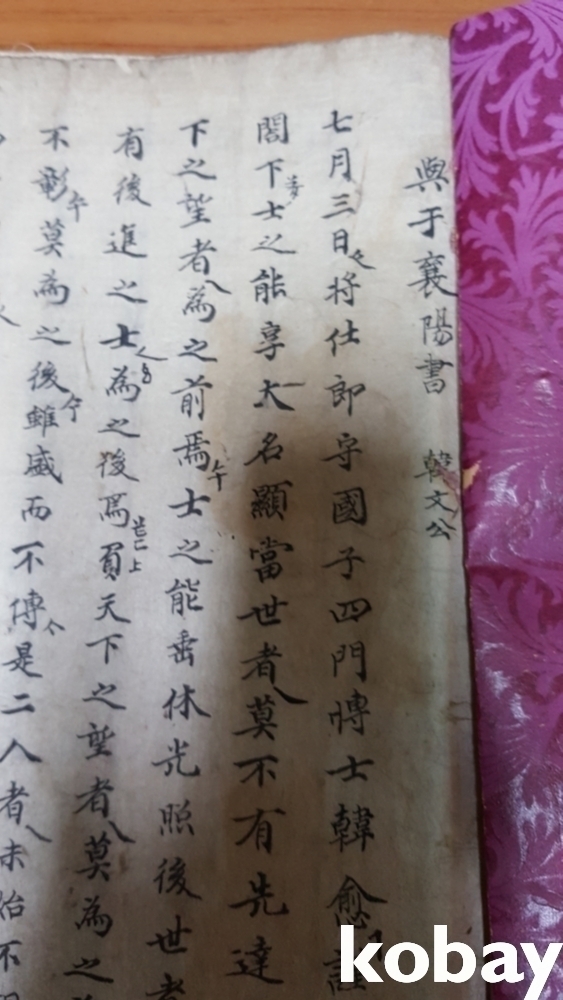 與于襄陽書 韓文公
七月三日将仕郎守國子四門愽士韓愈謹
閤下士之能享大名顯當世者莫不有先達
下之望者為之前焉士之能垂休光照後世者
有後進之士為之後焉負天下之望者莫為之
不彰莫為之後雖盛而不傳是二人者未始不
kobay